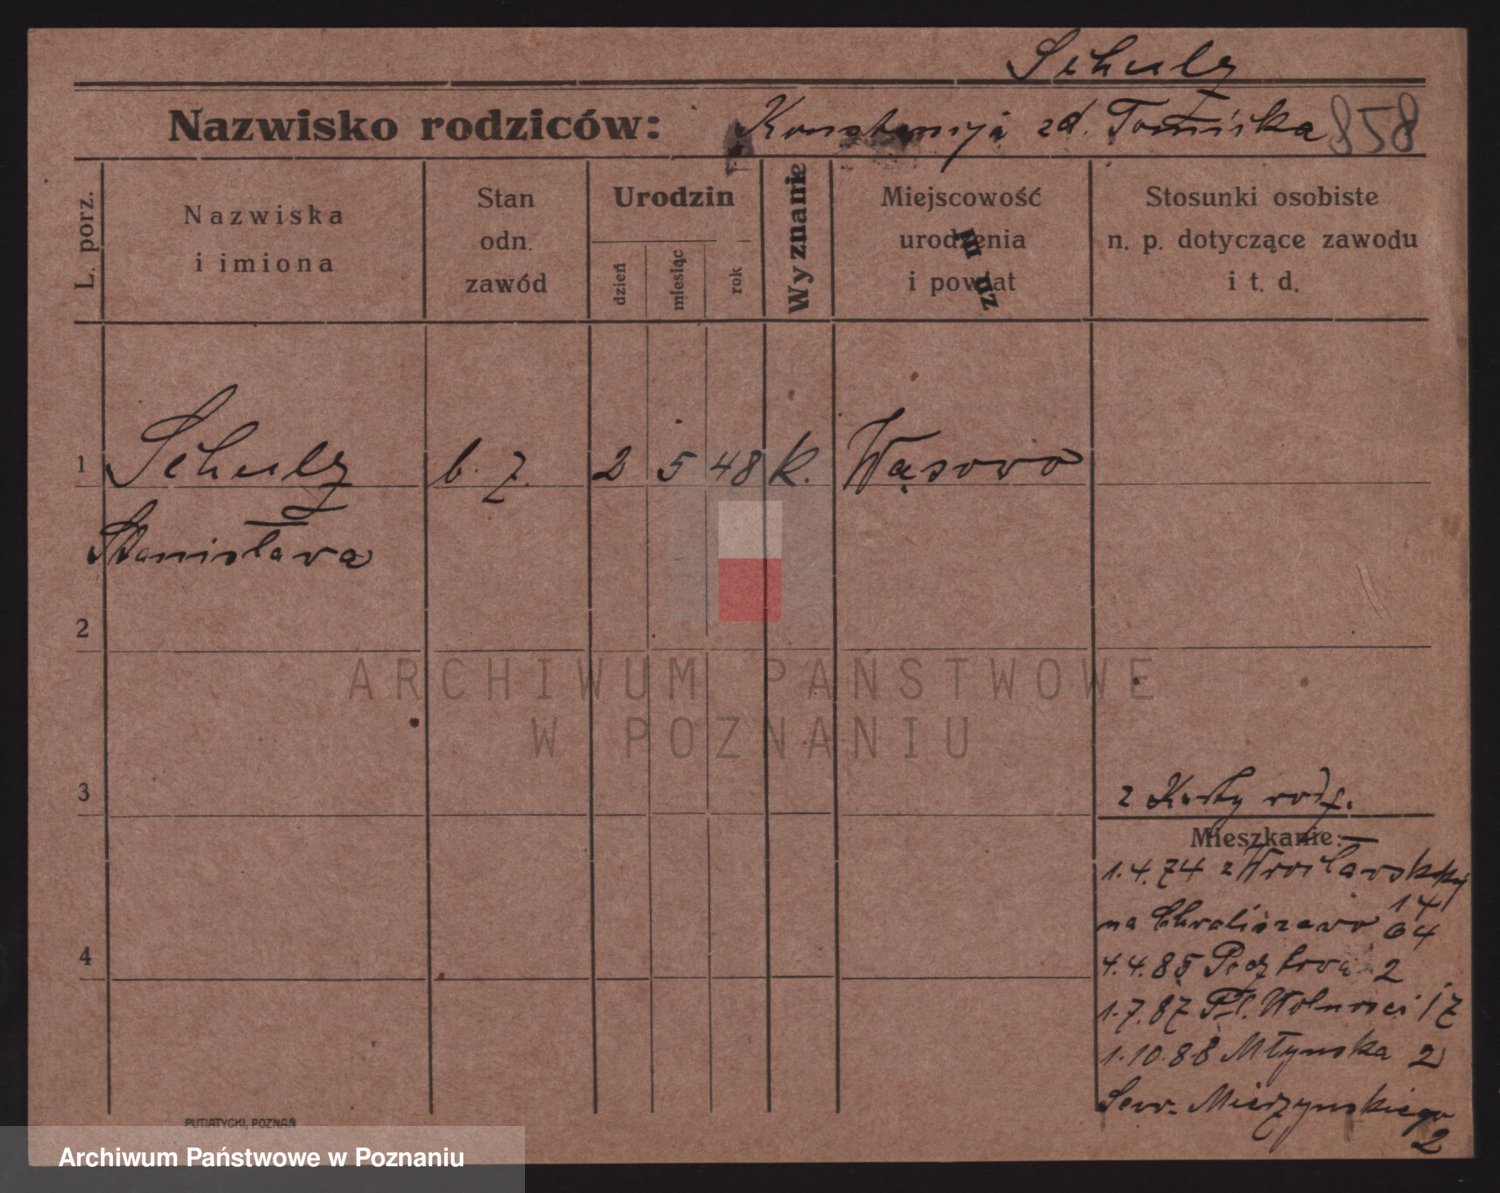 Schulz
Nazwisko rodziców: Konstancja zd. Tomiska 858
L. porz.
Nazwiska
i imiona
Stan
odn.
zawód
Urodzin
dzień
miesiąc
rok
Wyznanie
Miejscowość
urodzenia
i powiat
Stosunki osobiste
n. p. dotyczące zawodu
i t. d.
1 Schulz b. z. 2 5 48 k. Wąsowo
Stanisława
2
ARCHIWUM PAŃSTWOWE
W POZNANIU
3
z Karty rodz.
Mieszkanie:
1.4.74 z Wrocławskiej
14
na Chwaliszewo 64
4.4.85 2
1.7.87 Pl. Wolności 17
1.10.88 Młyńska 2
Sew. Mielżyńskiego
2
4
PUTIATYCKI, POZNAŃ
Archiwum Państwowe w Poznaniu